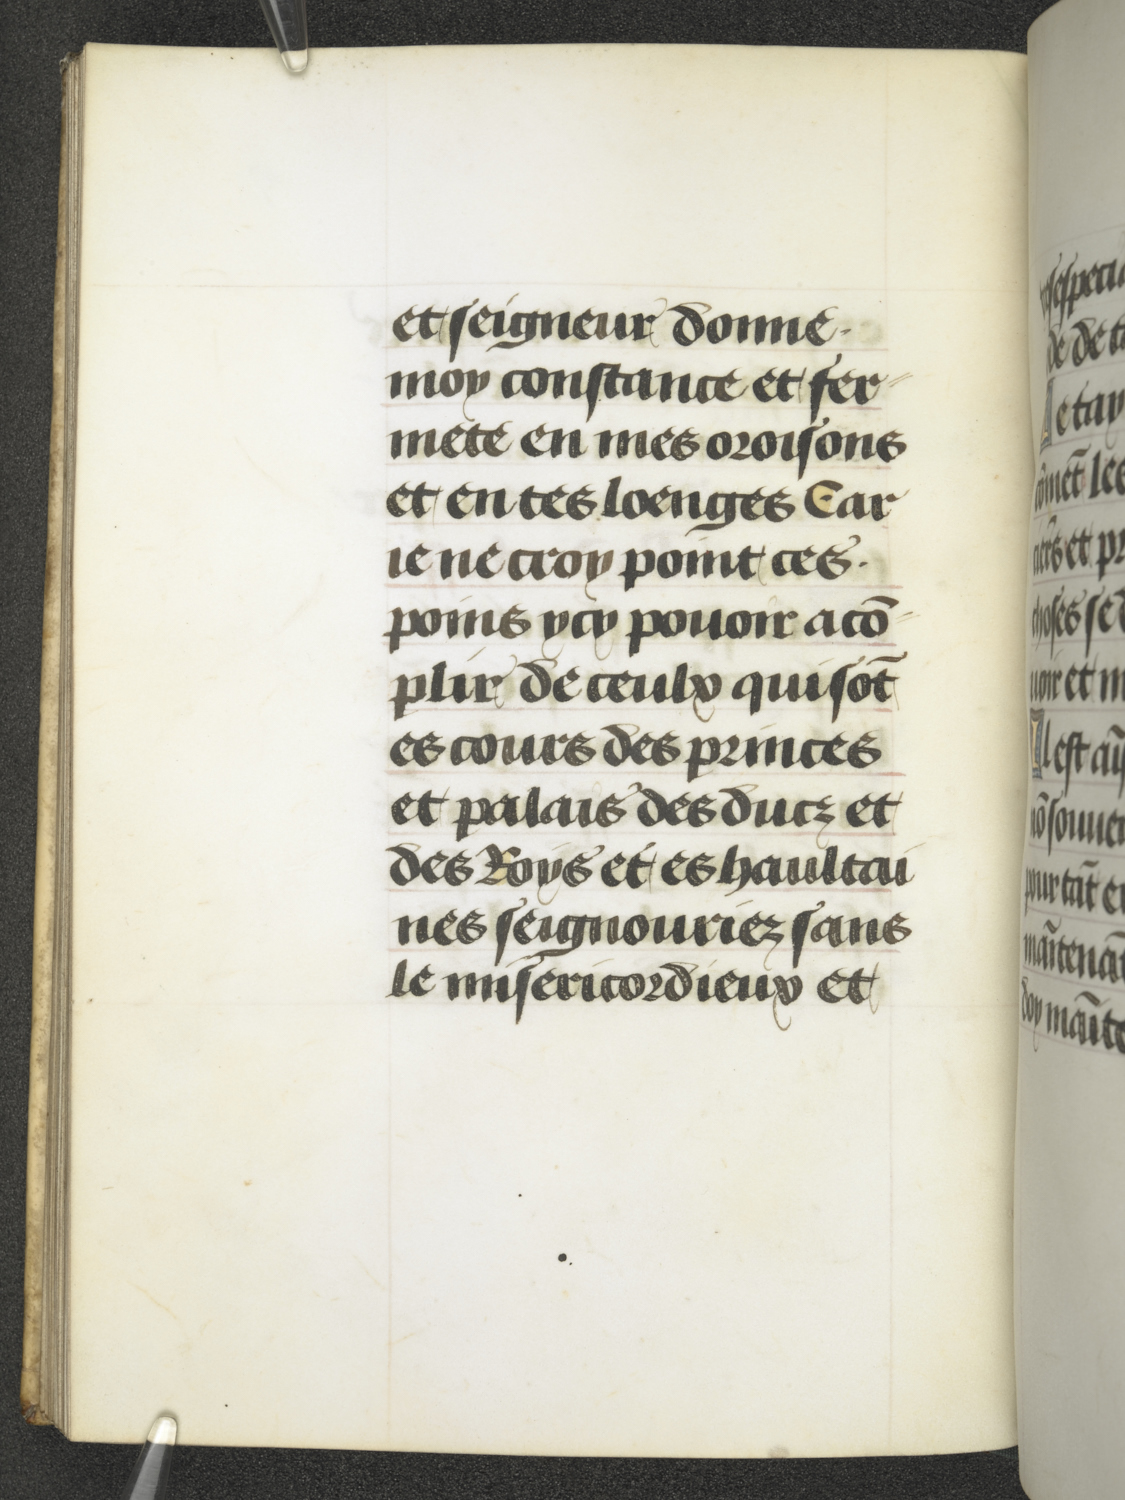 et seigneur donne-
moy constance et fer-
mete en mes oroisons
et en tes loenges Car
ie ne croy point ces.
poins ycy pouoir acō-
plir de ceulx qui sōt
es cours des princes
et palais des ducz et
des Roys et es haultai
nes seignouriez sans
le misericordieux et
de de
e tay
les
et
choses se
uoir et
l est
pour tāt